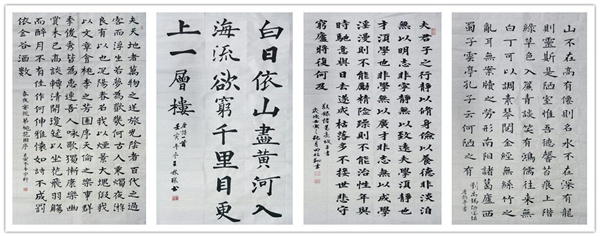 夫天地者萬物之逆旅光陰者百代之過
客而浮生若夢為歡幾何古人秉燭夜遊
良有以也況陽春召我以煙景大塊假我
以文章會桃李之芳園序天倫之樂事群
季俊秀皆為惠連吾人詠歌獨慚康樂幽
賞未已高談轉清開瓊筵以坐花飛羽觴
而醉月不有佳作何伸雅懷如詩不成罰
依金谷酒數
白日依山盡黃河入
海流欲窮千里目更
上一層樓
夫君子之行靜以修身儉以養德非淡泊
無以明志非寧靜無以致遠夫學須靜也
才須學也非學無以廣才非志無以成學
淫漫則不能勵精險躁則不能治性年與
時馳意與日去遂成枯落多不接世悲守
窮廬將復何及
山不在高有僊則名水不在深有龍
則靈斯是陋室惟吾德馨苔痕上階
綠草色入簾青談笑有鴻儒往來無
白丁可以調素琴閱金經無絲竹之
亂耳無案牘之勞形南陽諸葛廬西
蜀子雲亭孔子云何陋之有